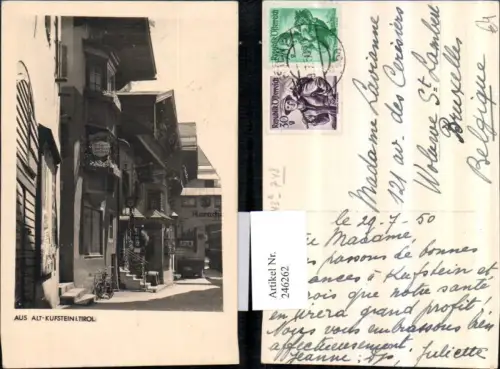 AUS ALT-KUFSTEIN (TIROL)
Republik Österreich
Republik Österreich
30
g
64
Madame Lavienne
121 av. des Cerisiers
Woluwe St Lambert
Bruxelles
Belgique
Artikel Nr.
246262
le 29-7-50
Madame,
passons de bonnes
à Kufstein et
que notre santé
en grand profit!
Nous vous embrassons bien
affectueusement.
Jeanne Juliette